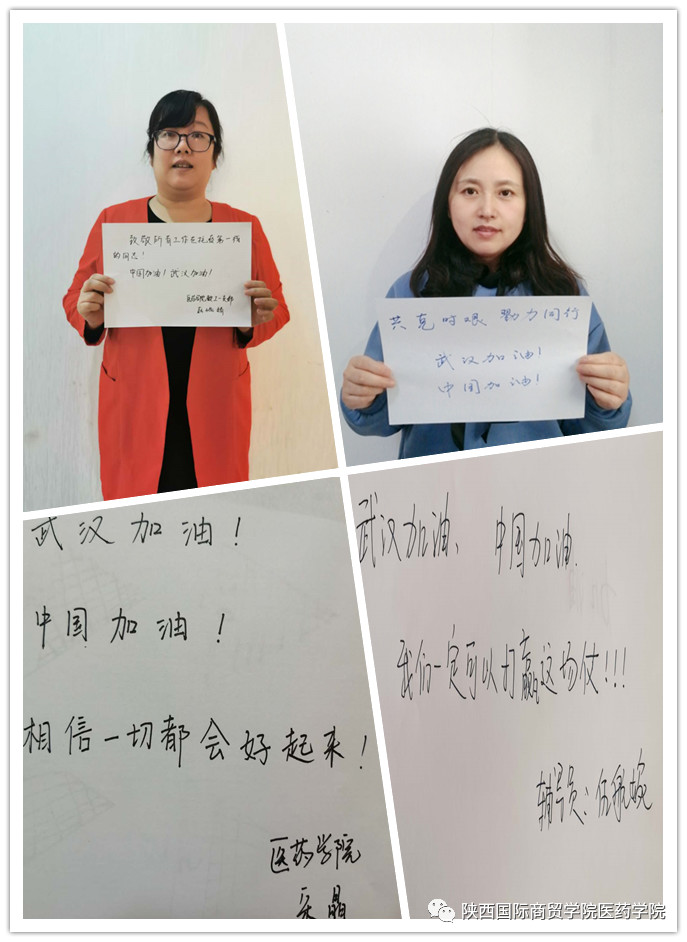 致敬所有工作在抗疫第一线
的同志!
中国加油!武汉加油!
共克时艰 勠力同行
武汉加油!
中国加油!
武汉加油!
中国加油!
相信一切都会好起来!
医药学院
武汉加油、中国加油.
我们一定可以打赢这场仗!!!
辅导员:任航婉
陕西国际商贸学院医药学院